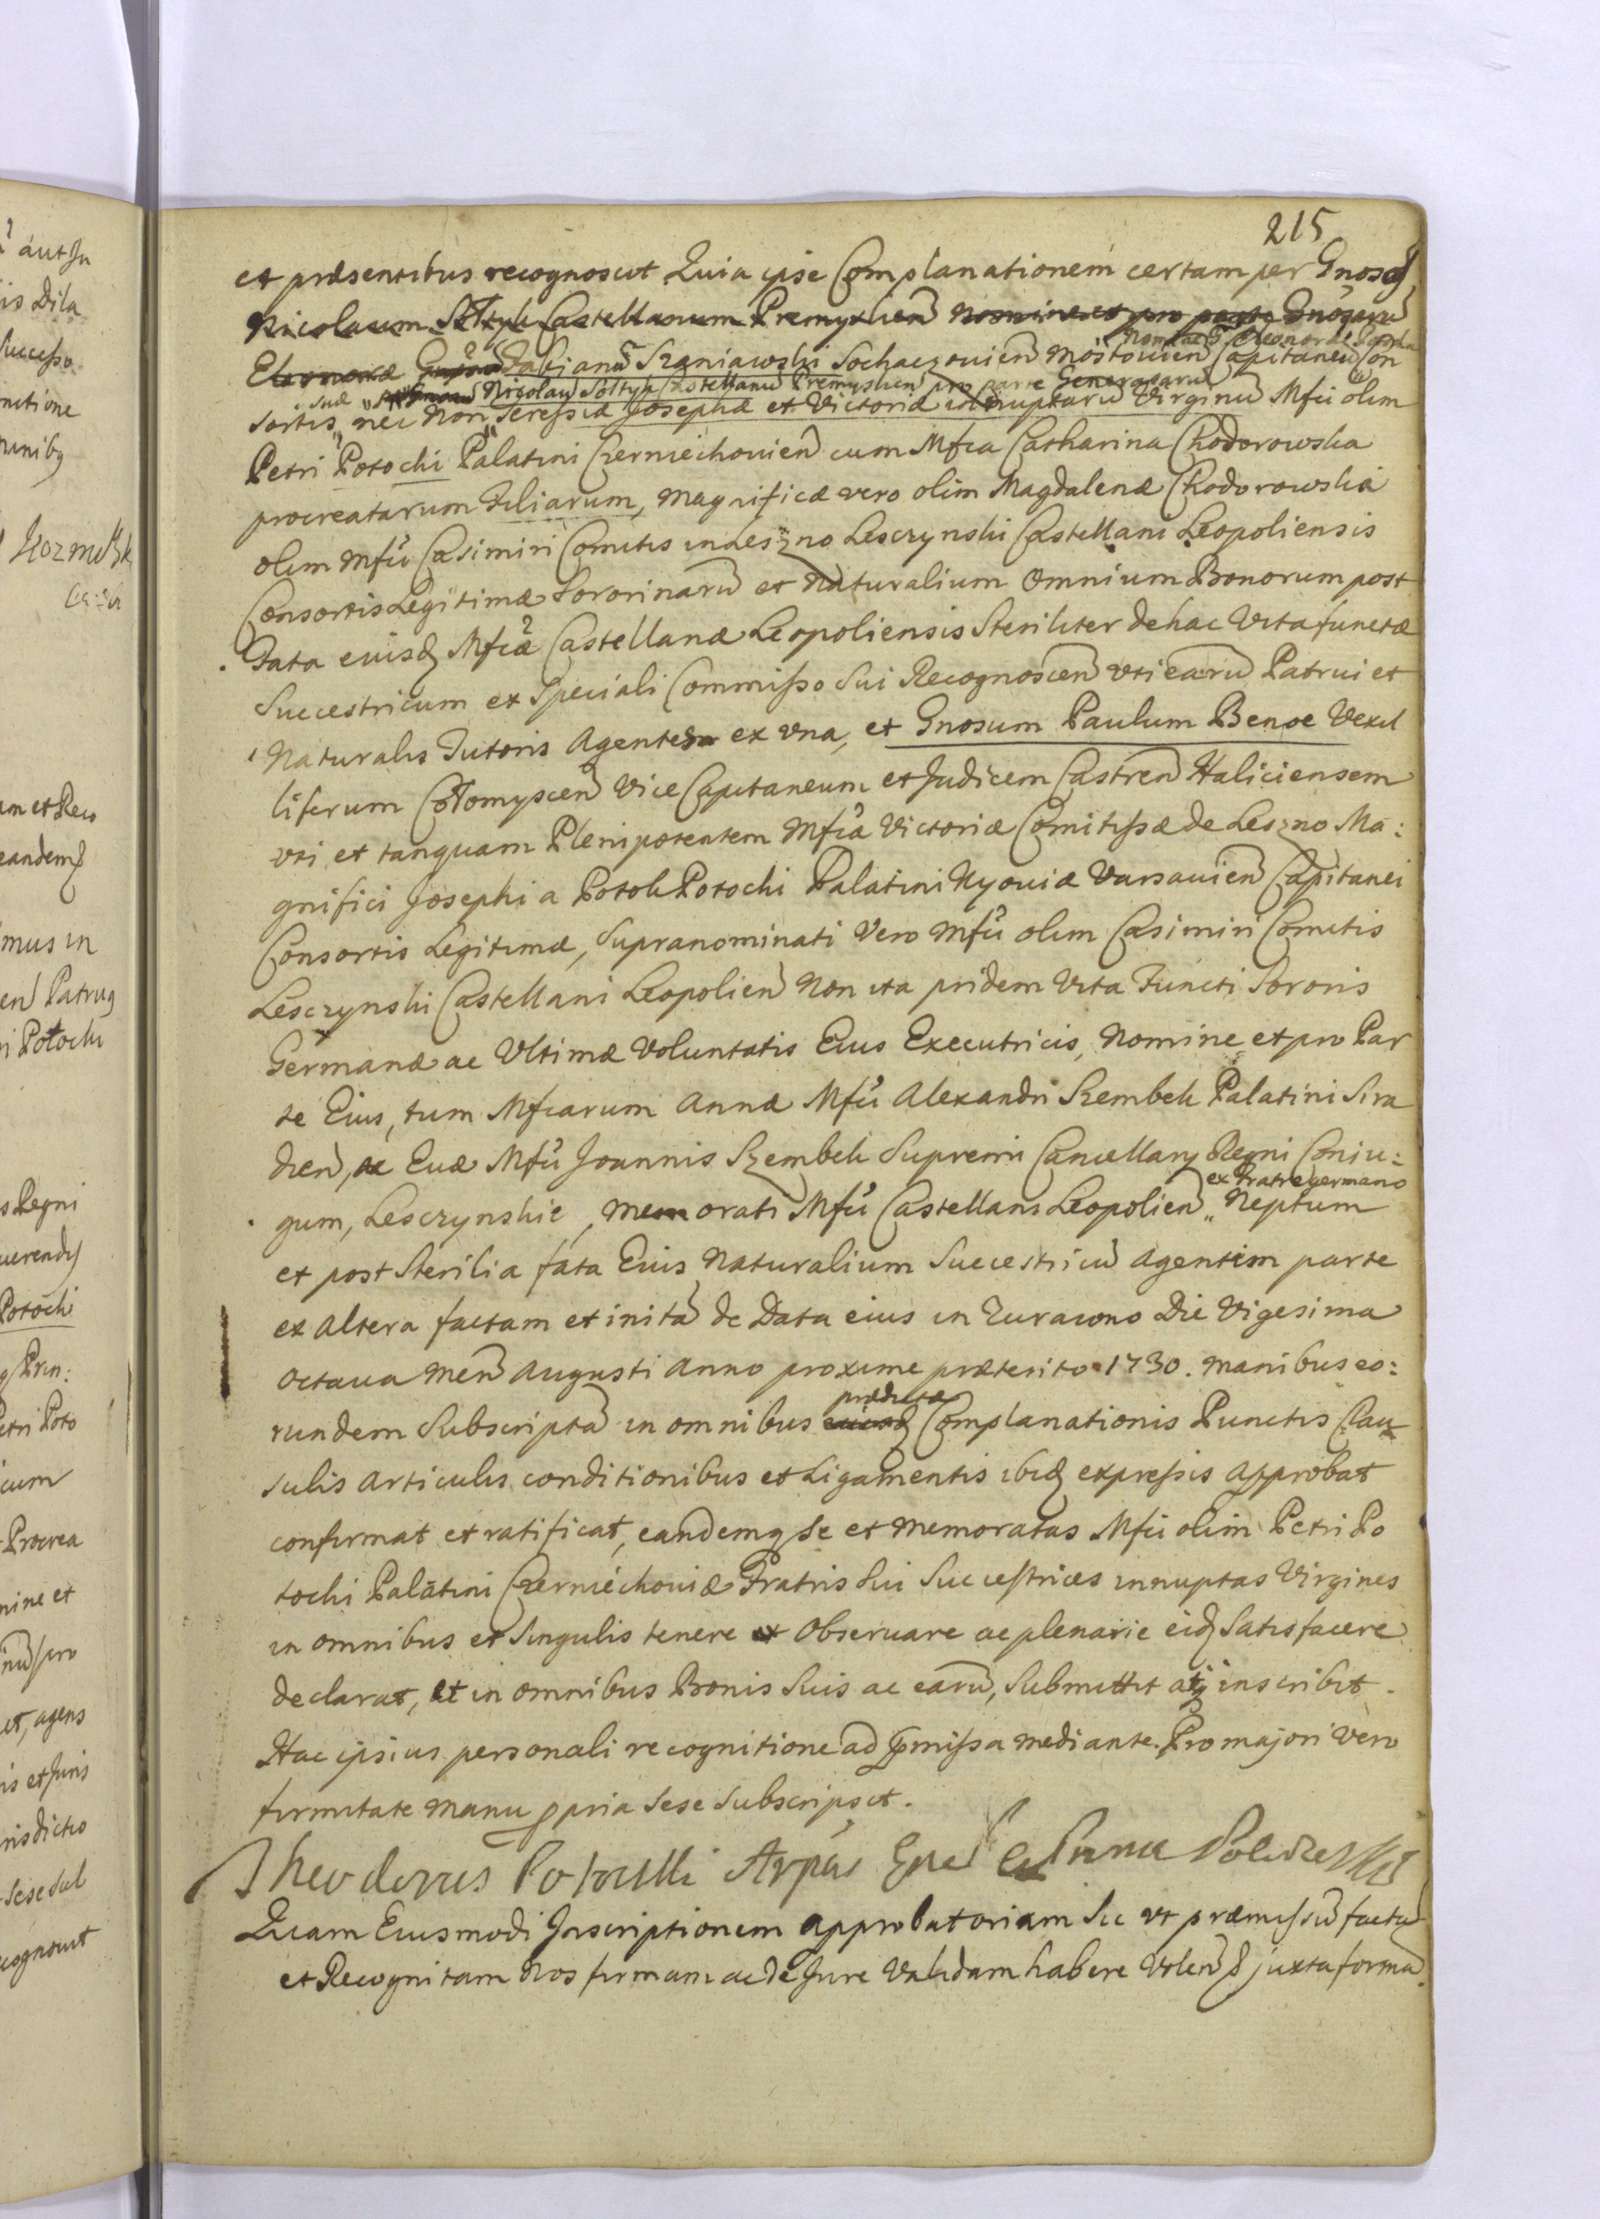 215
et præsentibus recognoscit Quia ipse Complanationem certam per Gnosos
Nicolaum Sołtyk Castellanum Premyslien Nomine et pro parte Gnosaru
Eleonoræ Fabjanu Szaniawski Sochaczovien Mostouien Capitaneu Con
Nomine Eleonoræ
sortis nec non Teressiæ Josephæ et Victoriæ innuptaru Virginu Mfci olim
suæ Nicolau Sołtyk Castellanu Premyslien pro parte Generosaru
Petri Potocki Palatini Czerniechouien cum Mfca Catharina Chodorowska
procreatarum Filiarum, Magnificæ vero olim Magdalenæ Chodorowska
olim Mfci Casimiri Comitis in Leszno Lesczynski Castellani Leopoliensis
Consortis Legitimæ Sororinaru et Naturalium Omnium Bonorum post
Fata eiusq Mfcæ Castellanæ Leopoliensis Steriliter de hac Vita functæ
Succestricum ex Speciali Commisso Sui Recognoscen uti earu Patrui et
Naturalis Tutoris Agentem ex una, et Gnosum Paulum Benoe Vexil
liferum Cołomyscen Vice Capitaneum et Judicem Castren Haliciensem
uti et tanquam Plenipotentem Mfcæ Victoriæ Comitissæ de Leszno Ma:
gnifici Josephi a Potok Potocki Palatini Kyoviæ Varsauien Capitanei
Consortis Legitimæ, Supranominati Vero Mfci olim Casimiri Comitis
Lesczynski Castellani Leopolien Non ita pridem Vita Functi Sororis
Germanæ ac Ultimæ Voluntatis Eius Executricis, Nomine et pro Par
te Eius, tum Mfcarum Annæ Mfci Alexandri Szembek Palatini Sira
dien, ac Euæ Mfci Joannis Szembek Supremi Cancellary Regni Coniu:
gum, Lesczynskie, Memorati Mfci Castellani Leopolien ex Fratre germano Neptum
et post Sterilia fata Eius Naturalium Succestricu agentem parte
ex altera factam et inita de Data eius in Zurawno Die Vigesima
octaua Men Augusti Anno proxime præterito 1730. manibus eo:
rundem Subscripta in omnibus prædictæ Complanationis Punctis Clau
sulis articulis conditionibus et Ligamentis ibiq expressis approbat
confirmat et ratificat, eandemq se et memoratas Mfci olim Petri Po
tocki Palatini Czerniechouiæ Fratris sui Successtrices innuptas Virgines
in omnibus et Singulis tenere et Obseruare ac plenarie eiq Satisfacere
declarat, et in omnibus Bonis Suis ac earu, Submittit atq inscribit.
Hac ipsius personali recognitione ad præmissa mediante. Pro majori Vero
firmitate manu propria Sese Subscripsit.
Theodorus Potocki
Quam Eiusmodi Inscriptionem approbatoriam Sic ut præmissu facta
et Recognitam Nos firmam ac de Jure Validam habere Volen juxta forma